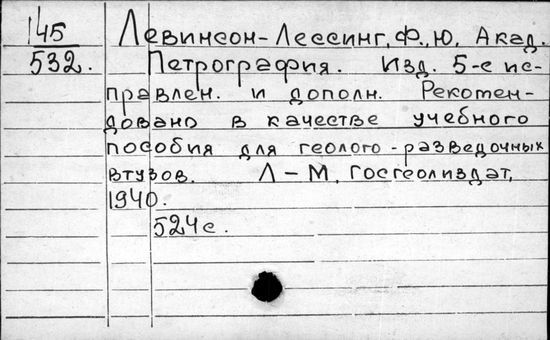 145
532.
Левинсон-Лессинг, Ф., Ю, Акад.
Петрография. Изд. 5-е ис-
правлен. и дополн. Рекотен-
довано в качестве учебного
пособия для геолого-разведочных
втузов. Л-М, Госгеолиздат,
1940.
524с.